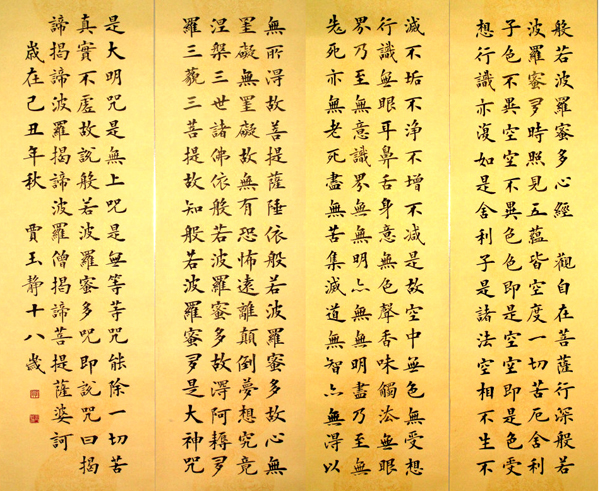 般若波羅蜜多心經 觀自在菩薩行深般若
波羅蜜多時照見五蘊皆空度一切苦厄舍利
子色不異空空不異色色即是空空即是色受
想行識亦復如是舍利子是諸法空相不生不
滅不垢不淨不增不減是故空中無色無受想
行識無眼耳鼻舌身意無色聲香味觸法無眼
界乃至無意識界無無明亦無無明盡乃至無
老死亦無老死盡無苦集滅道無智亦無得以
無所得故菩提薩埵依般若波羅蜜多故心無
罣礙無罣礙故無有恐怖遠離顛倒夢想究竟
涅槃三世諸佛依般若波羅蜜多故得阿耨多
羅三藐三菩提故知般若波羅蜜多是大神咒
是大明咒是無上咒是無等等咒能除一切苦
真實不虛故說般若波羅蜜多咒即說咒曰揭
諦揭諦波羅揭諦波羅僧揭諦菩提薩婆訶
歲在己丑年秋 賈玉靜十八歲